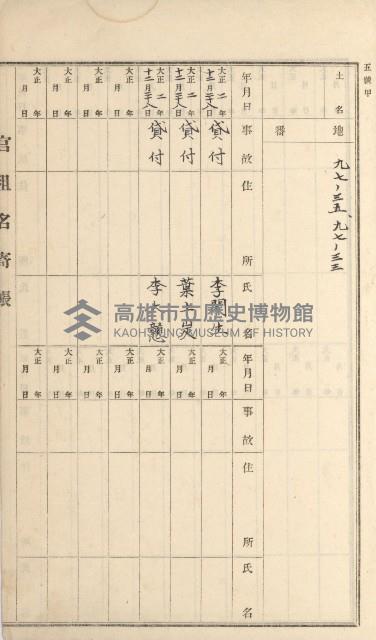 五號甲
土名
地番
九七ノ三五、九七ノ三三
年月日 事故 住所 氏名
大正二年十二月二十八日 貸付
大正二年十二月二十八日 貸付
大正二年十二月二十八日 貸付 李大憨
大正 年 月 日
大正 年 月 日
大正 年 月 日
年月日 事故 住所 氏名
大正 年 月 日
大正 年 月 日
大正 年 月 日
大正 年 月 日
大正 年 月 日
大正 年 月 日
官租名寄帳
高雄市立歷史博物館
KAOHSIUNG MUSEUM OF HISTORY